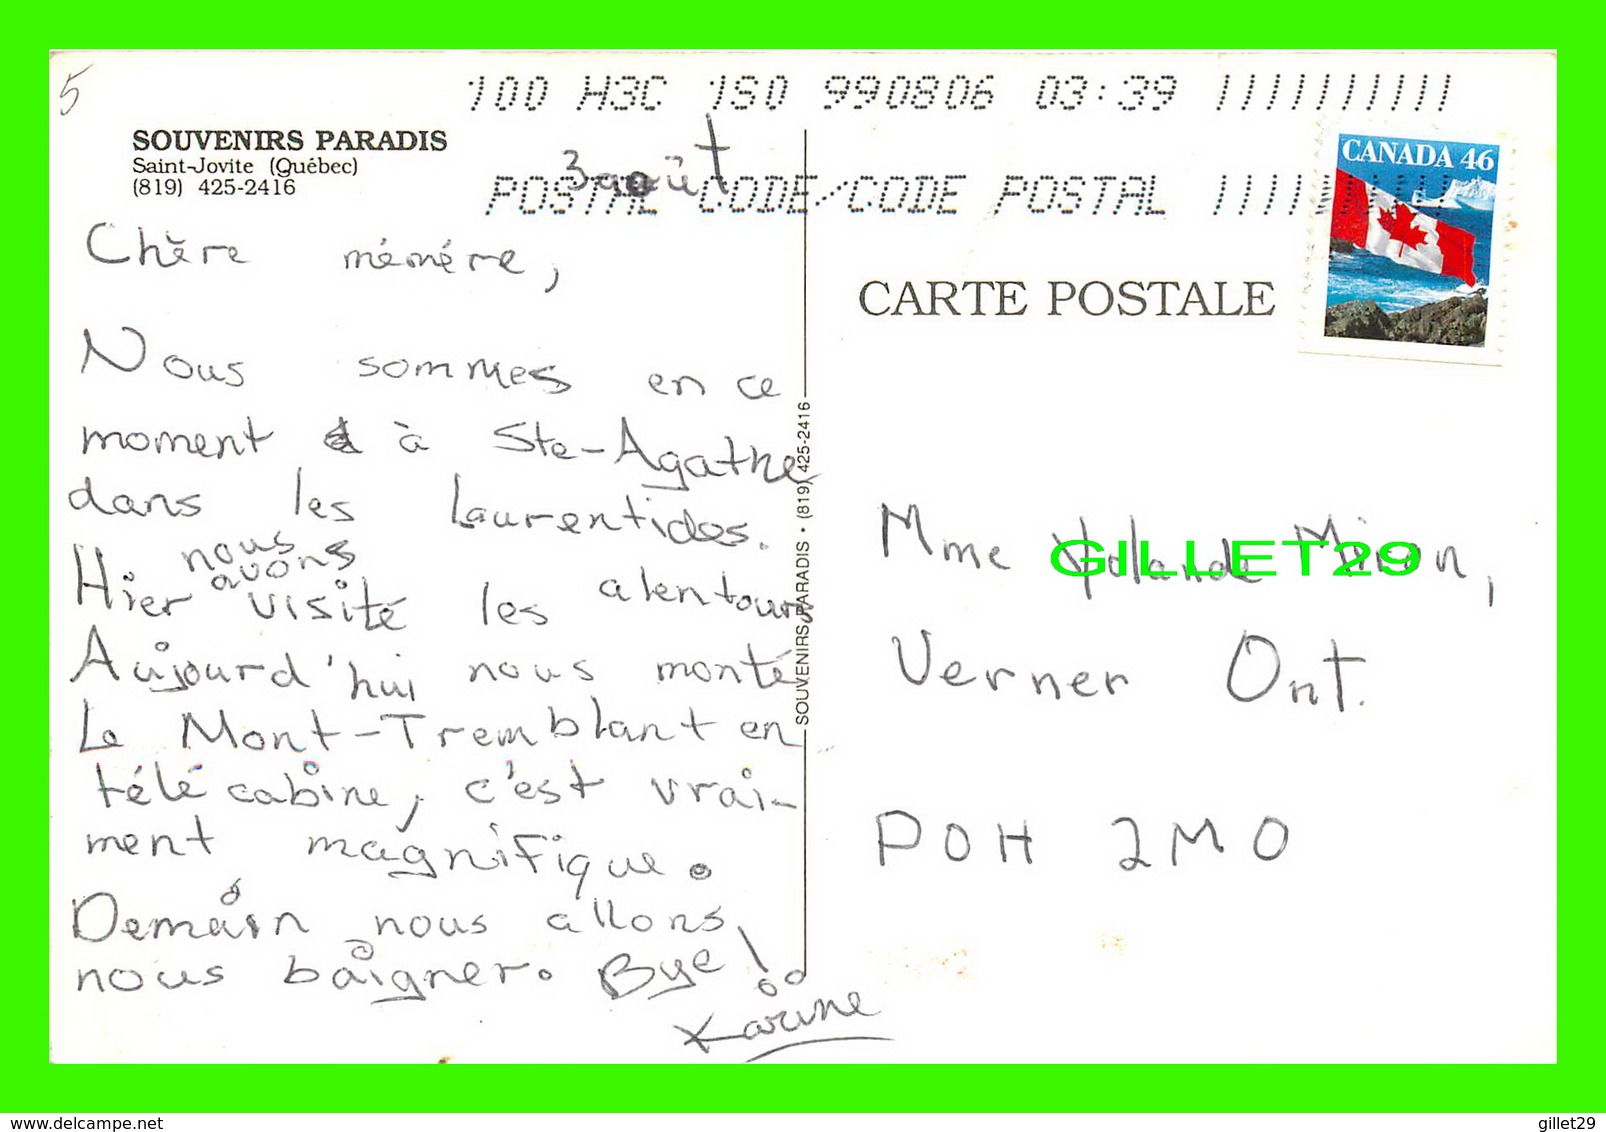 5
100 H3C 1S0 990806 03:39
POSTAL CODE/CODE POSTAL
SOUVENIRS PARADIS
Saint-Jovite (Québec)
(819) 425-2416
3 août
CANADA 46
CARTE POSTALE
Chère mémére,
Nous sommes en ce
moment à Ste-Agathe
dans les Laurentides.
Hier nous avons visité les alentours
Aujourd'hui nous monté
Le Mont-Tremblant en
télé cabine, c'est vrai-
ment magnifique.
Demain nous allons
nous baigner. Bye!
Karine
SOUVENIRS PARADIS • (819) 425-2416
Mme Yolande Miron,
GILLET29
Verner Ont.
P0H 2M0
delcampe.net
gillet29